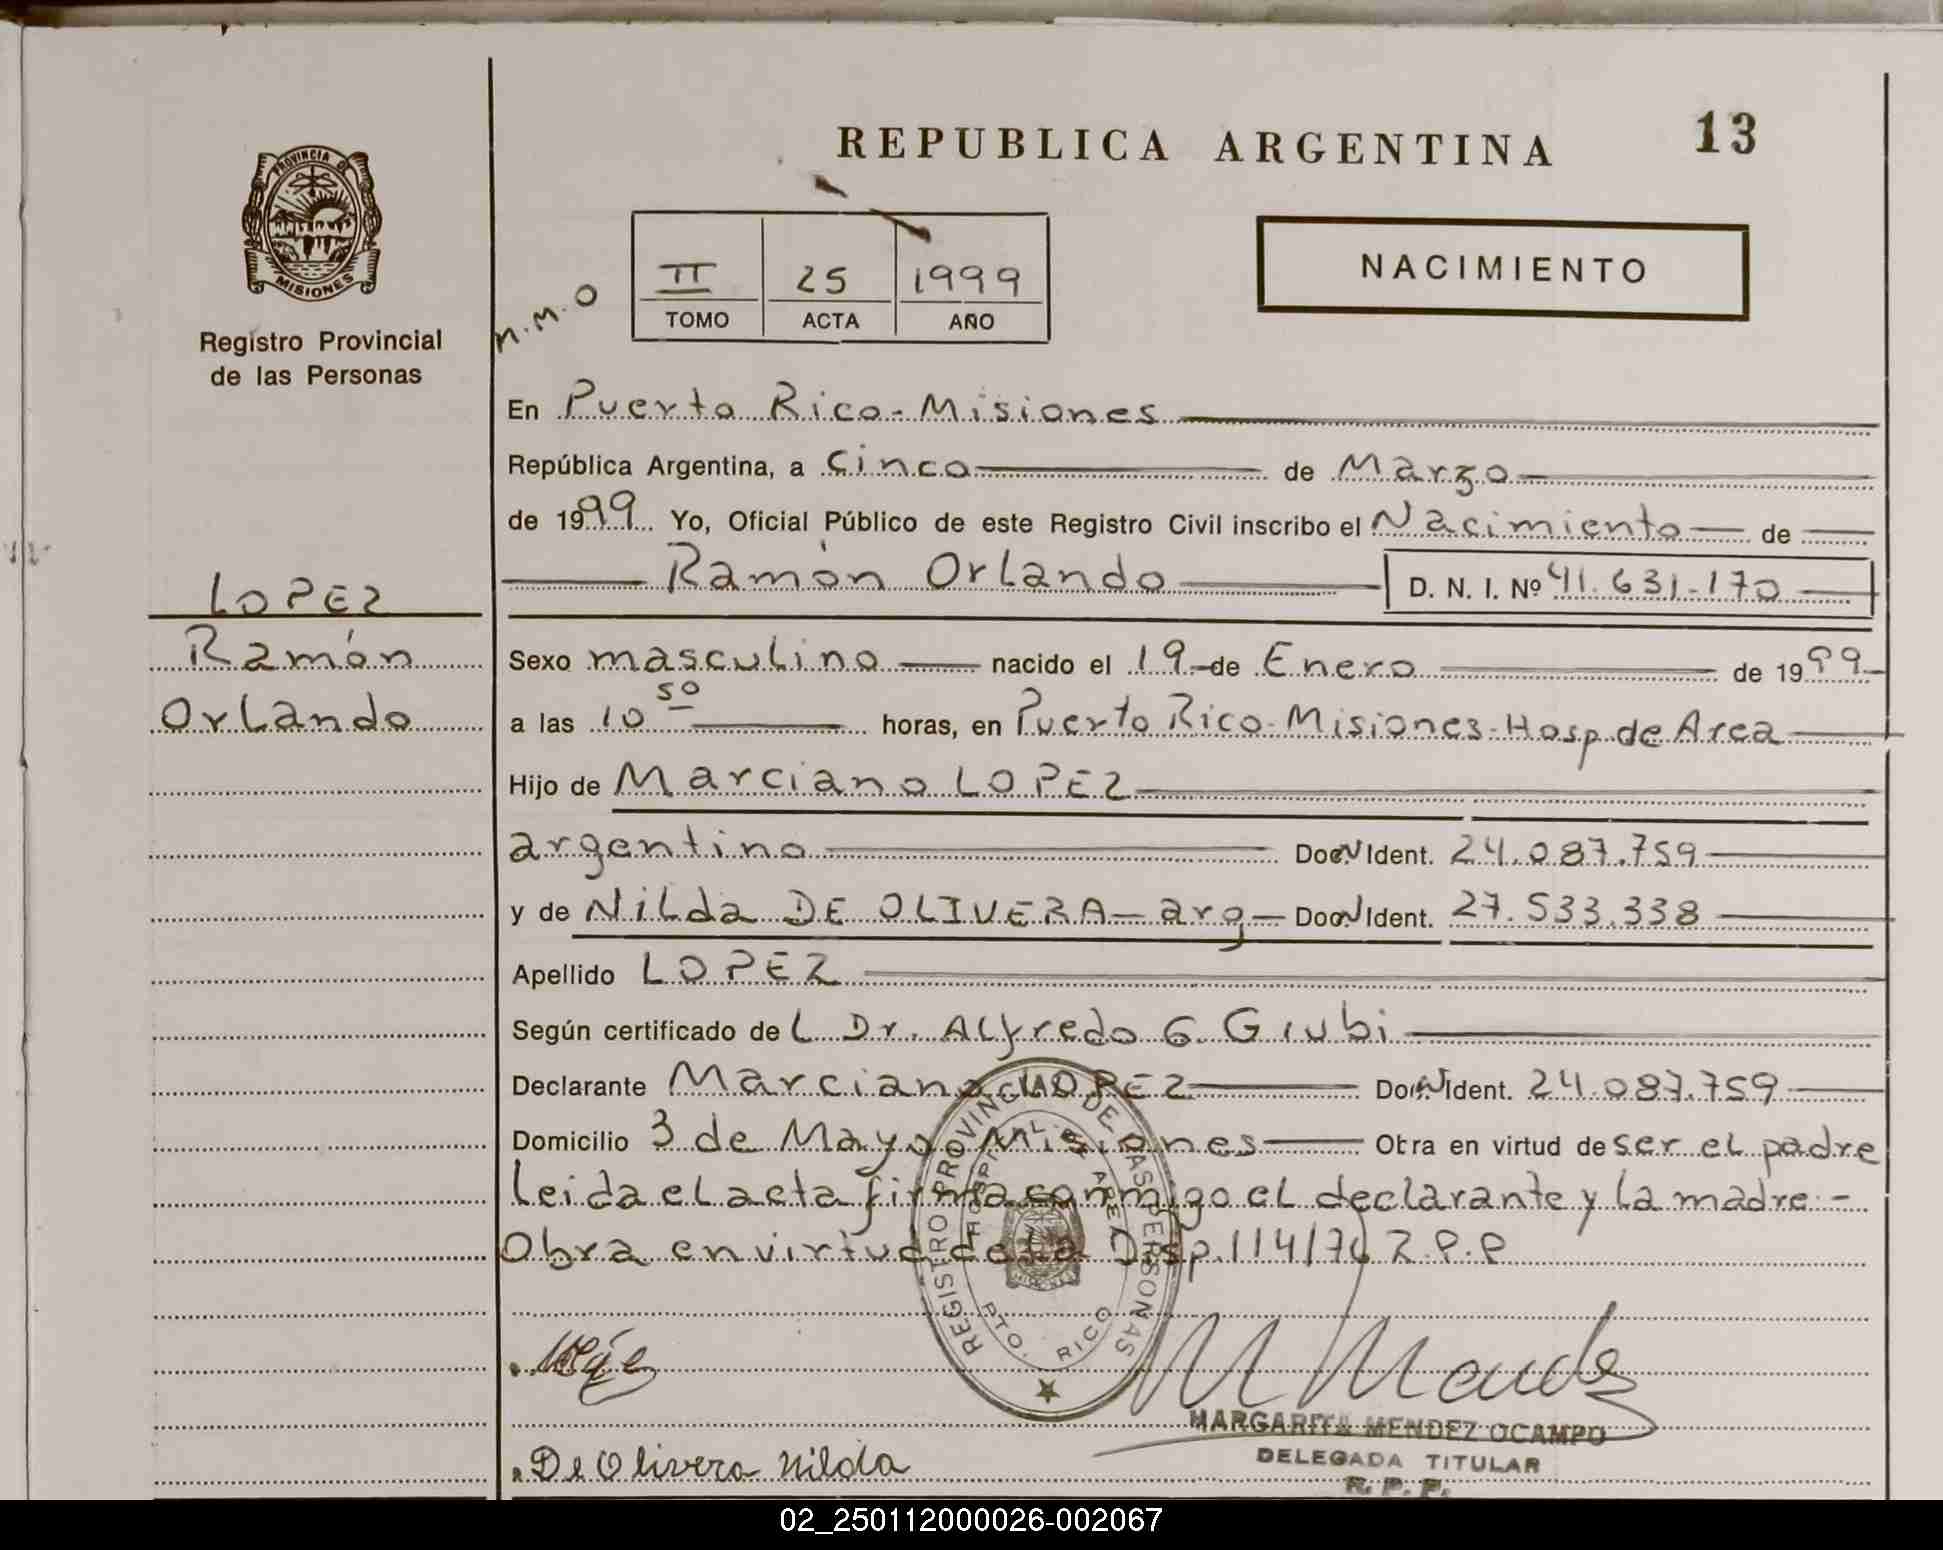 REPUBLICA ARGENTINA
13
PROVINCIA DE
MISIONES
Registro Provincial
de las Personas
n.m.o
II 25 1999
TOMO ACTA AÑO
NACIMIENTO
En Puerto Rico - Misiones
República Argentina, a Cinco de Marzo
de 1999 Yo, Oficial Público de este Registro Civil inscribo el Nacimiento de
Ramón Orlando D. N. I. Nº 41.631.170
LOPEZ
Ramón
Orlando
Sexo masculino nacido el 19 de Enero de 1999
a las 10 50 horas, en Puerto Rico - Misiones - Hosp. de Area
Hijo de Marciano LOPEZ
argentino Doc. N Ident. 24.087.759
y de Nilda DE OLIVERA - arg - Doc. N Ident. 27.533.338
Apellido LOPEZ
Según certificado del Dr. Alfredo G. Giubi
Declarante Marciano LOPEZ Doc. N Ident. 24.087.759
Domicilio 3 de Mayo Misiones Obra en virtud de ser el padre
Leida el acta firma conmigo el declarante y la madre. -
Obra en virtud de la Disp. 114/76 R.P.P
REGISTRO PROVINCIAL DE LAS PERSONAS
HOSPITAL DE AREA
PTO. RICO
M Mendez
MARGARITA MENDEZ OCAMPO
DELEGADA TITULAR
R. P. P.
De Olivera Nilda
02_250112000026-002067